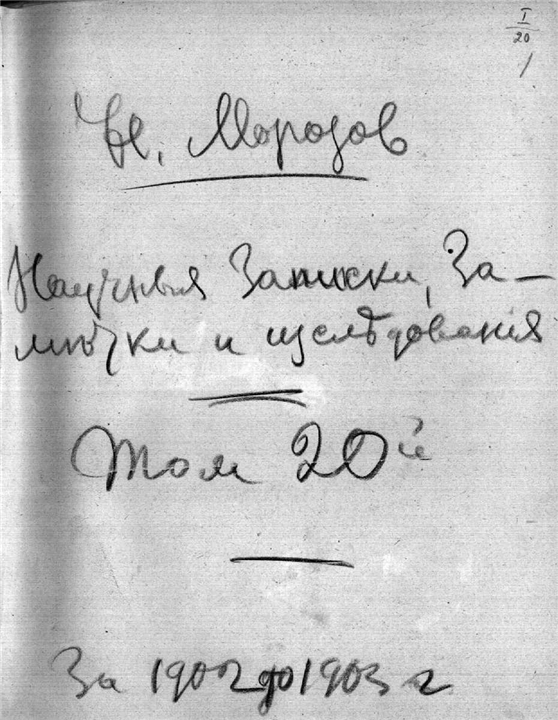 I
20
1
Н. Морозов
Научныя Записки, За-
мѣтки и изслѣдованія
Том 20й
За 1902 до 1903 г